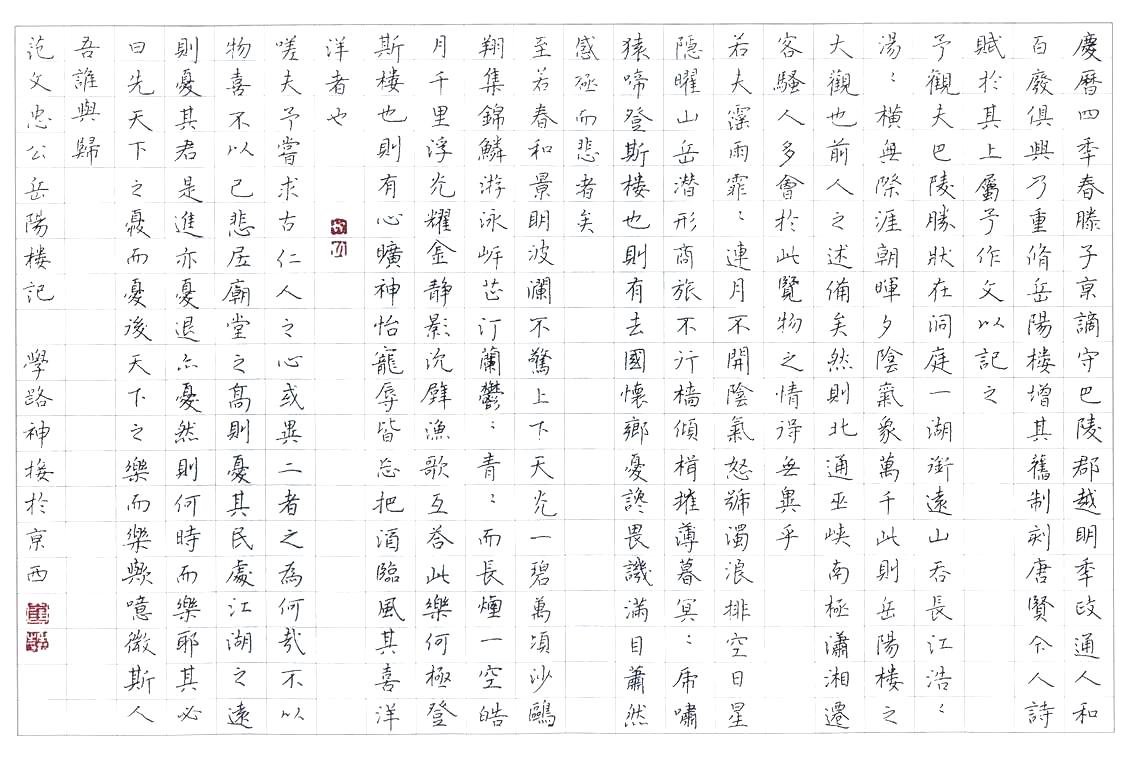 慶曆四季春滕子京謫守巴陵郡越明季政通人和
百廢俱興乃重脩岳陽樓增其舊制刻唐賢今人詩
賦於其上屬予作文以記之
予觀夫巴陵勝狀在洞庭一湖銜遠山吞長江浩〻
湯〻橫無際涯朝暉夕陰氣象萬千此則岳陽樓之
大觀也前人之述備矣然則北通巫峽南極瀟湘遷
客騷人多會於此覽物之情得無異乎
若夫霪雨霏〻連月不開陰氣怒號濁浪排空日星
隱曜山岳潛形商旅不行檣傾楫摧薄暮冥〻虎嘯
猿啼登斯樓也則有去國懷鄉憂讒畏譏滿目蕭然
感極而悲者矣
至若春和景明波瀾不驚上下天光一碧萬頃沙鷗
翔集錦鱗游泳岸芷汀蘭鬱〻青〻而長煙一空皓
月千里浮光耀金静影沉璧漁歌互答此樂何極登
斯樓也則有心曠神怡寵辱皆忘把酒臨風其喜洋
洋者也
嗟夫予嘗求古仁人之心或異二者之為何哉不以
物喜不以己悲居廟堂之高則憂其民處江湖之遠
則憂其君是進亦憂退亦憂然則何時而樂耶其必
曰先天下之憂而憂後天下之樂而樂歟噫微斯人
吾誰與歸
范文忠公岳陽樓記 學路神接於京西